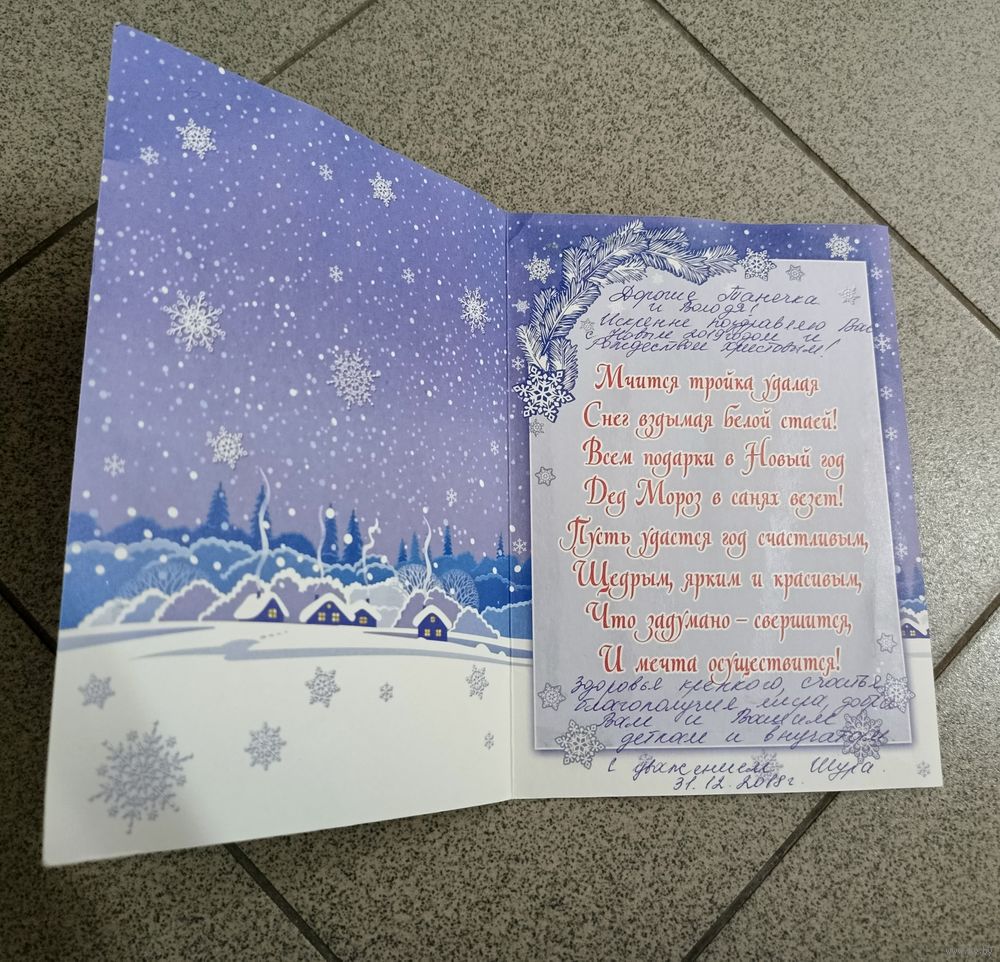 Дорогие Танечка
и Володя!
Искренне поздравляю Вас
с Новым годом и
Рождеством Христовым!
Мчится тройка удалая
Снег вздымая белой стаей!
Всем подарки в Новый год
Дед Мороз в санях везет!
Пусть удастся год счастливым,
Щедрым, ярким и красивым,
Что задумано – свершится,
И мечта осуществится!
Здоровья крепкого, счастья,
благополучия, мира, добра
Вам и Вашим
деткам и внучатам
С уважением Шура.
31.12.2018г.